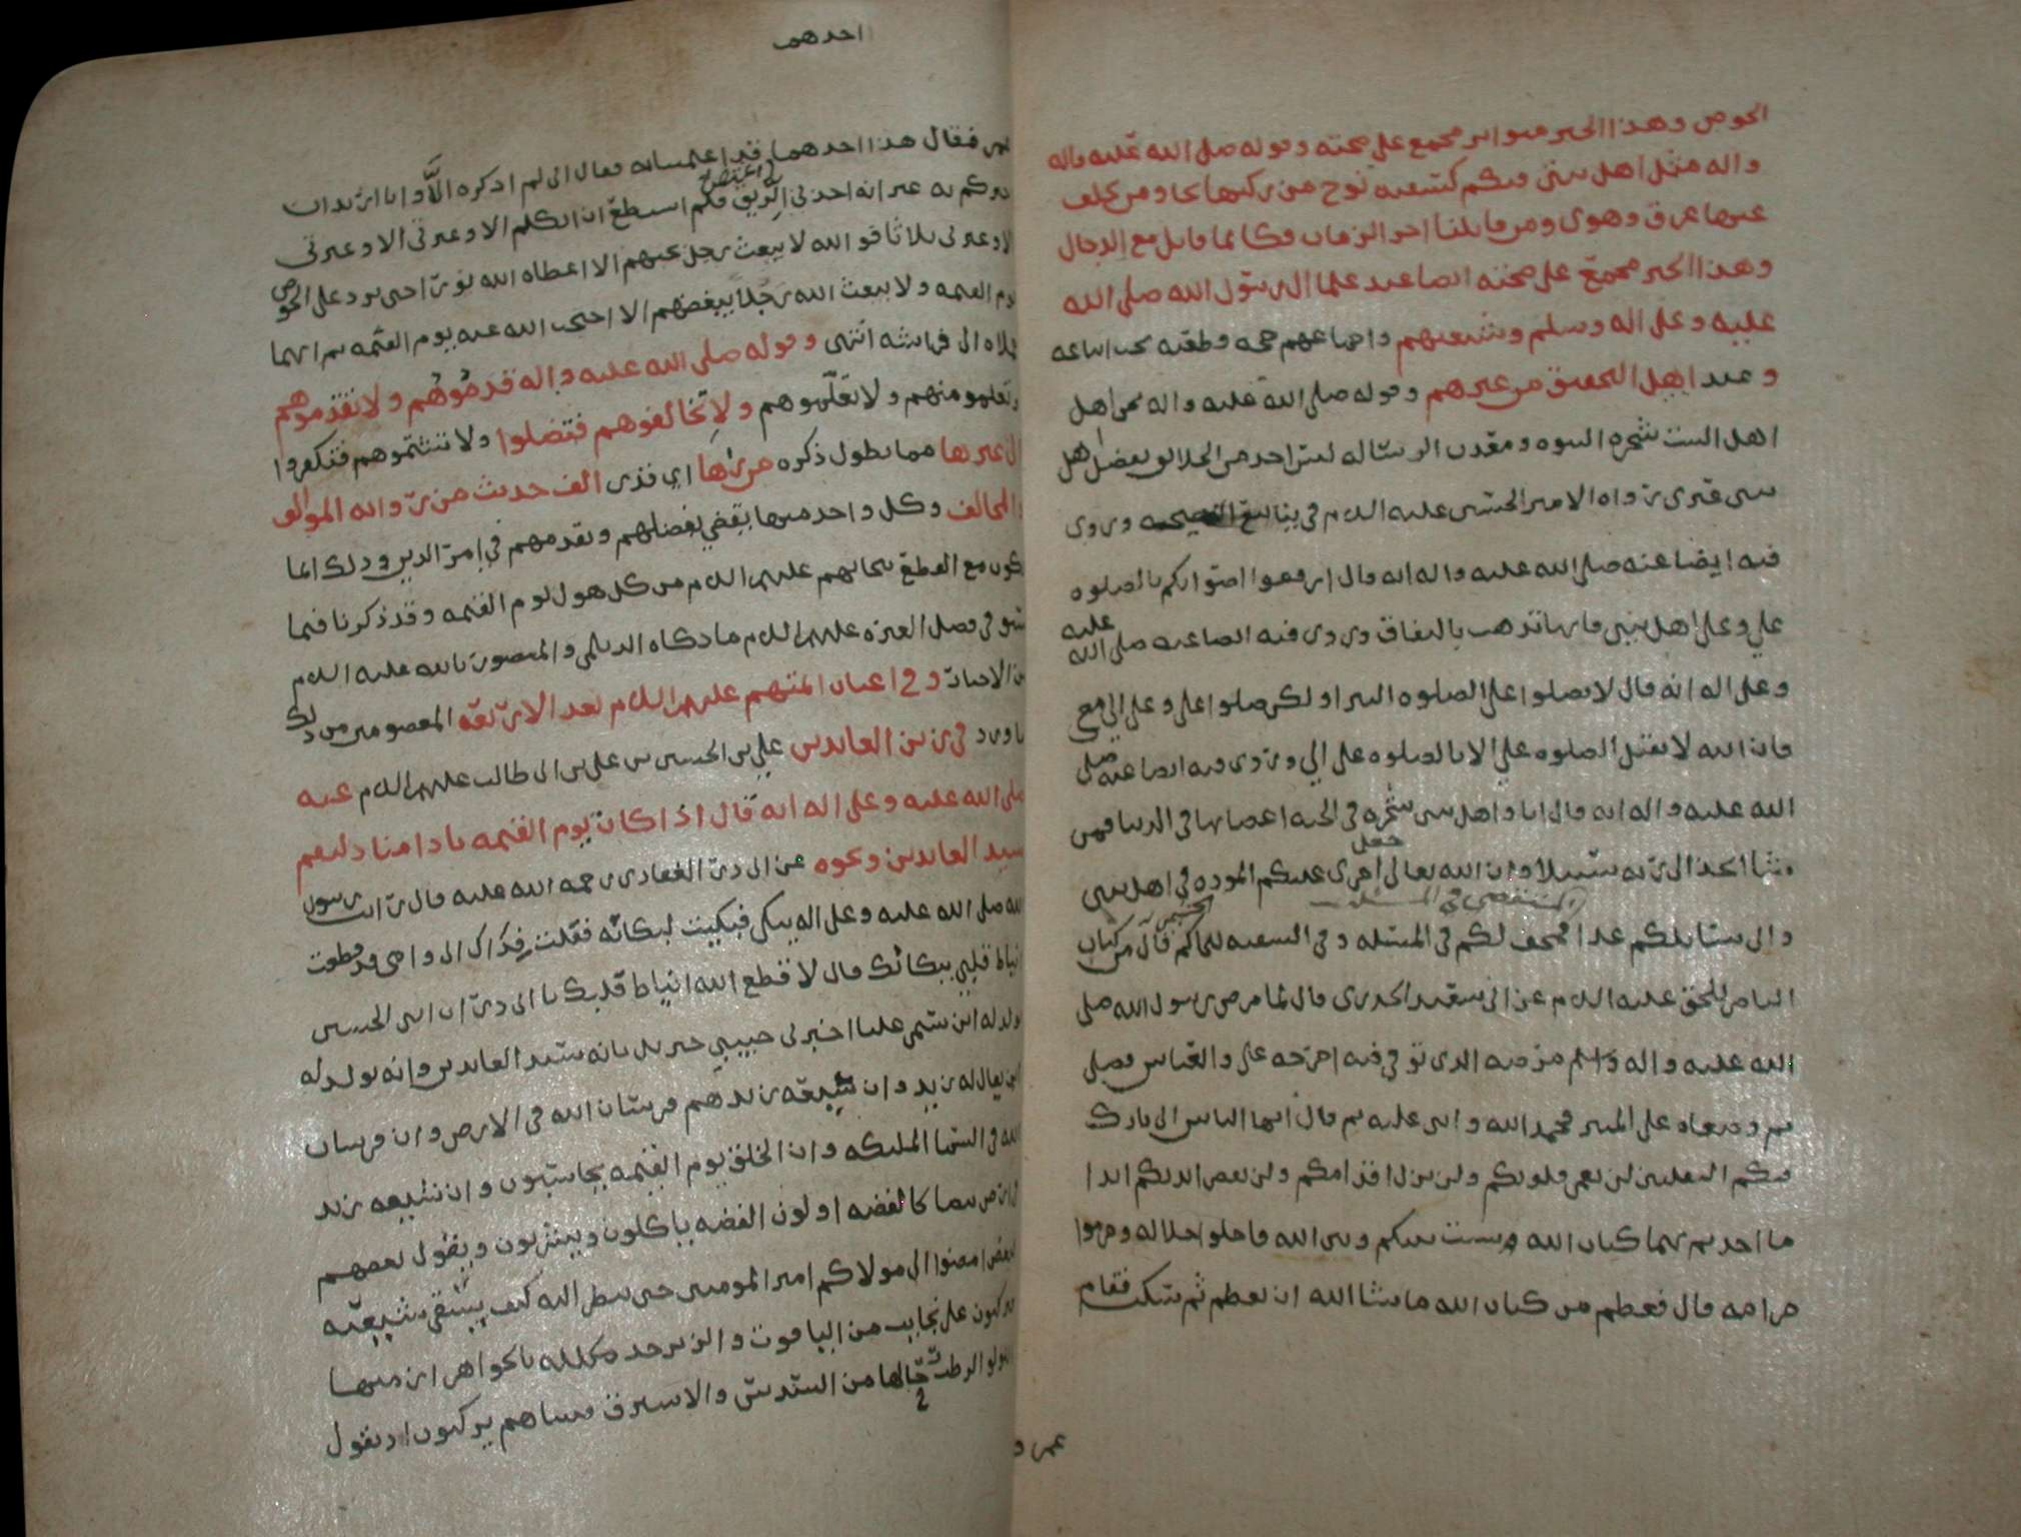 الحوض وهذا الخبر متواتر مجمع على صحته وقوله صلى الله عليه وآله
واله مثل اهل بيتي فيكم كسفينه نوح من ركبها نجا ومن تخلف
عنها غرق وهوى ومن قاتلنا اخر الزمان فكانما قاتل مع الدجال
وهذا الخبر مجمع على صحته ايضا عند علما ال رسول الله صلى الله
عليه وعلى اله وسلم وشيعتهم واجماعهم حجه قطعيه يجب اتباعه
وعند اهل التحقيق من غيرهم وقوله صلى الله عليه واله نحن اهل
اهل البيت شجره النبوه ومعدن الرساله ليس احد من الخلائق يفضل اهل
بيتي غيري رواه الامير الحسين عليه السلام في ينابيع النصيحه وروى
فيه ايضا عنه صلى الله عليه واله انه قال ارفعوا اصواتكم بالصلوه
علي وعلى اهل بيتي فانها تذهب بالنفاق وروى فيه ايضا عنه صلى الله عليه
وعلى اله انه قال لا تصلوا علي الصلوه البترا ولكن صلوا علي وعلى الي معي
فان الله لا يقبل الصلوه علي الا بالصلوه على الي وروى فيه ايضا عنه صلى
الله عليه واله انه قال انا واهل بيتي شجره في الجنه اغصانها في الدنيا فمن
شا اتخذ الى ربه سبيلا وان الله تعالى جعل اجري عليكم الموده في اهل بيتي
واني سائلكم غدا فمحف لكم في المسئله وفي السفينه للحاكم الجشمي قال من كتاب
الناصر للحق عليه السلام عن ابي سعيد الخدري قال لما مرض رسول الله صلى
الله عليه واله وسلم مرضه الذي توفي فيه اخرجه علي والعباس فصلى
ثم وضعاه على المنبر فحمد الله واثنى عليه ثم قال ايها الناس اني تارك
فيكم الثقلين لن تعمى قلوبكم ولن تزل اقدامكم ولن تقصر ايديكم ابدا
ما اخذتم بهما كتاب الله وبينكم وبين الله فاحلوا حلاله وحرموا
حرامه قال فعظم من كتاب الله ما شا الله ان يعظم ثم سكت فقام
عمر و
احدهما
عمر فقال هذا احدهما قد اعلمتنا به فقال اني لم اذكره الا وانا اريد ان
اخبركم به غير انه اخذني الريق فلم استطع ان اتكلم الا وعترتي الا وعترتي
الا وعترتي ثلاثا فو الله لا يبعث رجل يحبهم الا اعطاه الله نورا حتى يرد على الحوض
يوم القيمه ولا يبعث الله رجلا يبغضهم الا احتجب الله عنه يوم القيمه ثم انهما
حملاه الى فراشه انتهى وقوله صلى الله عليه واله قدموهم ولا تقدموهم
وتعلموا منهم ولا تعلموهم ولا تخالفوهم فتضلوا ولا تشتموهم فتكفروا
الى غيرها مما يطول ذكره من زها اي قدرى الف حديث من روايه الموالف
والمخالف وكل واحد منها يقضي بفضلهم وتقدمهم في امر الدين وذلك انما
يكون مع القطع بنجاتهم عليهم السلام من كل هول يوم القيمه وقد ذكرنا فيما
سبق في فضل العتره عليهم السلام ما حكاه الديلمي والمنصور بالله عليه السلام
من الاخبار وفي اعيان ائمتهم عليهم السلام بعد الاربعه المعصومين من ذلك
ما ورد في زين العابدين علي بن الحسين بن علي بن ابي طالب عليهم السلام عنه
صلى الله عليه وعلى اله انه قال اذا كان يوم القيمه نادا مناد ليقم
سيد العابدين ونحوه عن ابي ذر الغفاري رحمه الله عليه قال رايت رسول
الله صلى الله عليه وعلى اله يبكي فبكيت لبكائه فقلت فداك ابي وامي قد قطعت
انياط قلبي ببكائك قال لا قطع الله انياط قلبك يا ابا ذر ان ابني الحسين
يولد له ابن يسمى عليا اخبرني حبيبي جبريل بانه سيد العابدين وانه يولد له
ابن يقال له زيد وان شيعه زيد هم فرسان الله في الارض وان فرسان
الله في السما الملئكه وان الخلق يوم القيمه يحاسبون وان شيعه زيد
في ارض بيضا كالفضه او لون الفضه ياكلون ويشربون ويقول بعضهم
لبعض امضوا الى مولاكم امير المومنين حتى ننظر اليه كيف يسقي شيعته
فيركبون على نجايب من الياقوت والزبرجد مكلله بالجواهر ازمتها
اللولو الرطب رحالها من السندس والاستبرق فبيناهم يركبون اذ يقول